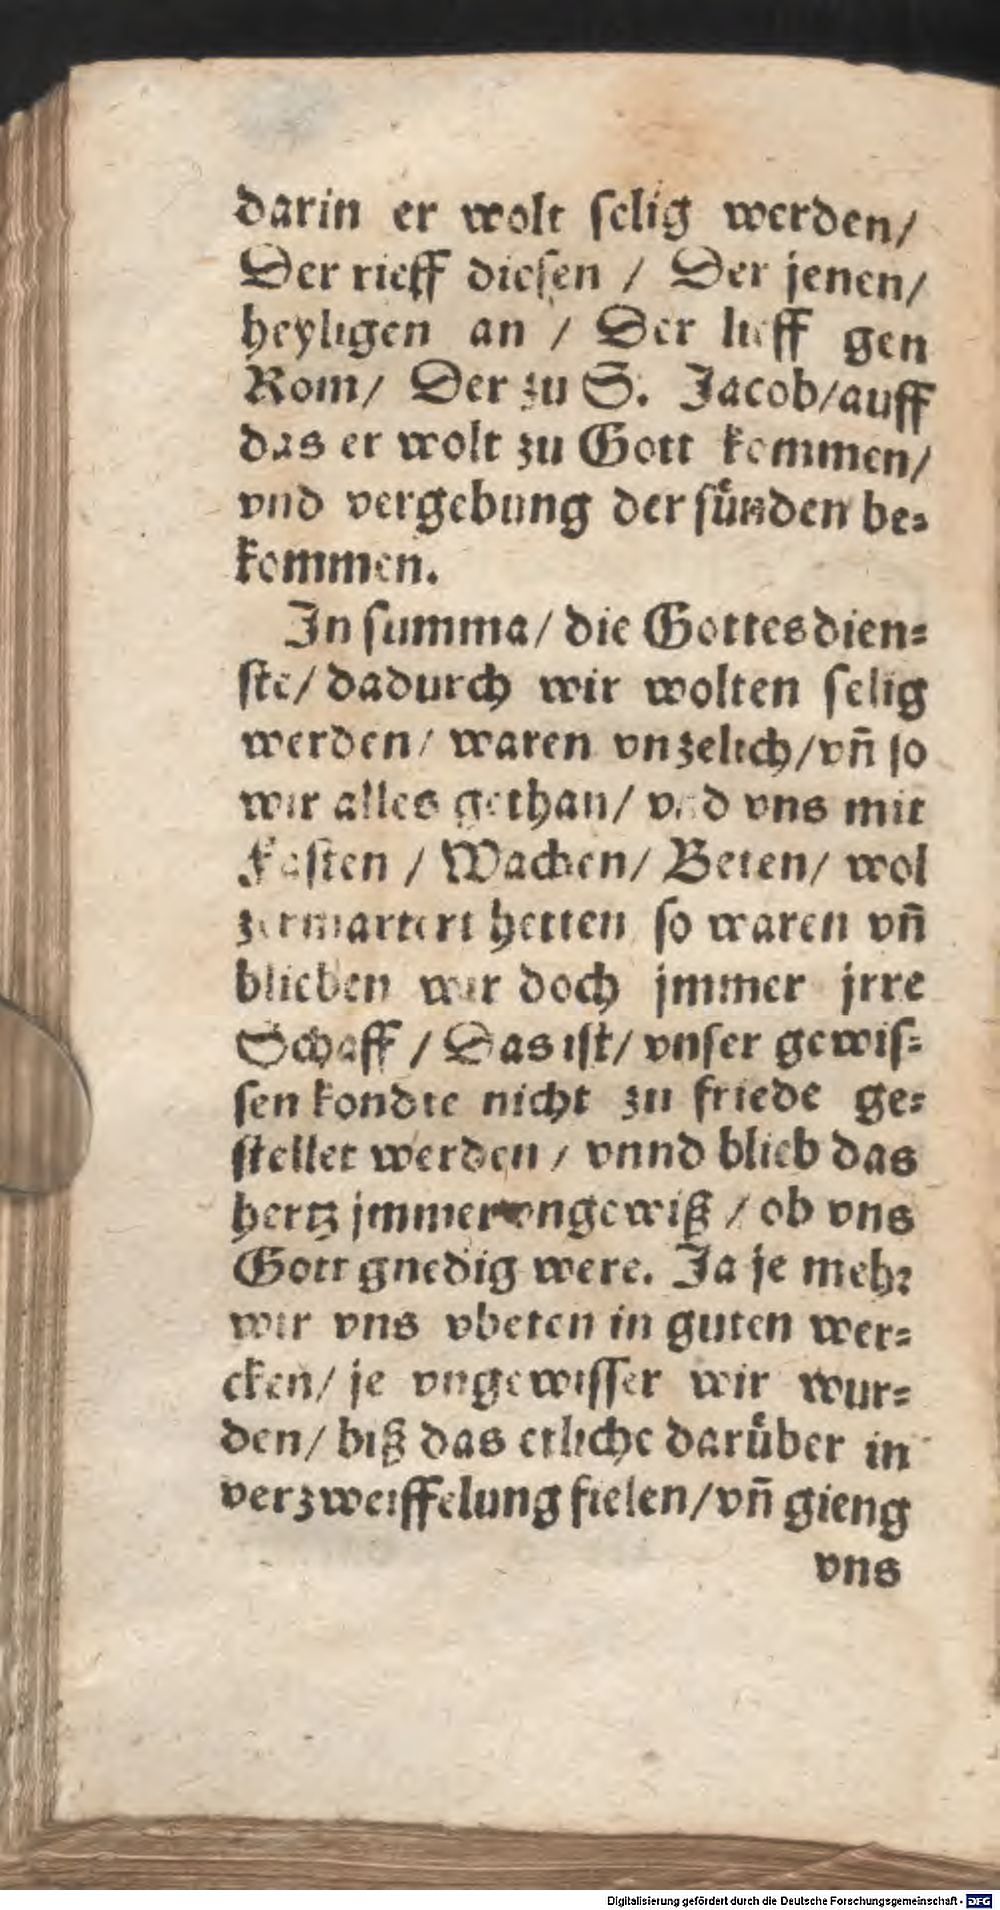 darin er wolt selig werden/
Der rieff diesen / Der jenen/
heyligen an / Der lieff gen
Rom/ Der zu S. Jacob/auff
das er wolt zu Gott kommen/
vnd vergebung der suͤnden be-
kommen.
In summa/ die Gottesdien-
ste/ dadurch wir wolten selig
werden/ waren vnzelich/vn̄ so
wir alles gethan/ vnd vns mit
Fasten / Wachen/ Beten/ wol
zermartert hetten so waren vn̄
blieben wir doch jmmer jrre
Schaff / Das ist/ vnser gewis-
sen kondte nicht zu friede ge-
stellet werden / vnnd blieb das
hertz jmmer vngewiß / ob vns
Gott gnedig were. Ja je mehr
wir vns vbeten in guten wer-
cken/ je vngewisser wir wur-
den/ biß das etliche daruͤber in
verzweiffelung fielen/vn̄ gieng
vns
Digitalisierung gefördert durch die Deutsche Forschungsgemeinschaft - DFG